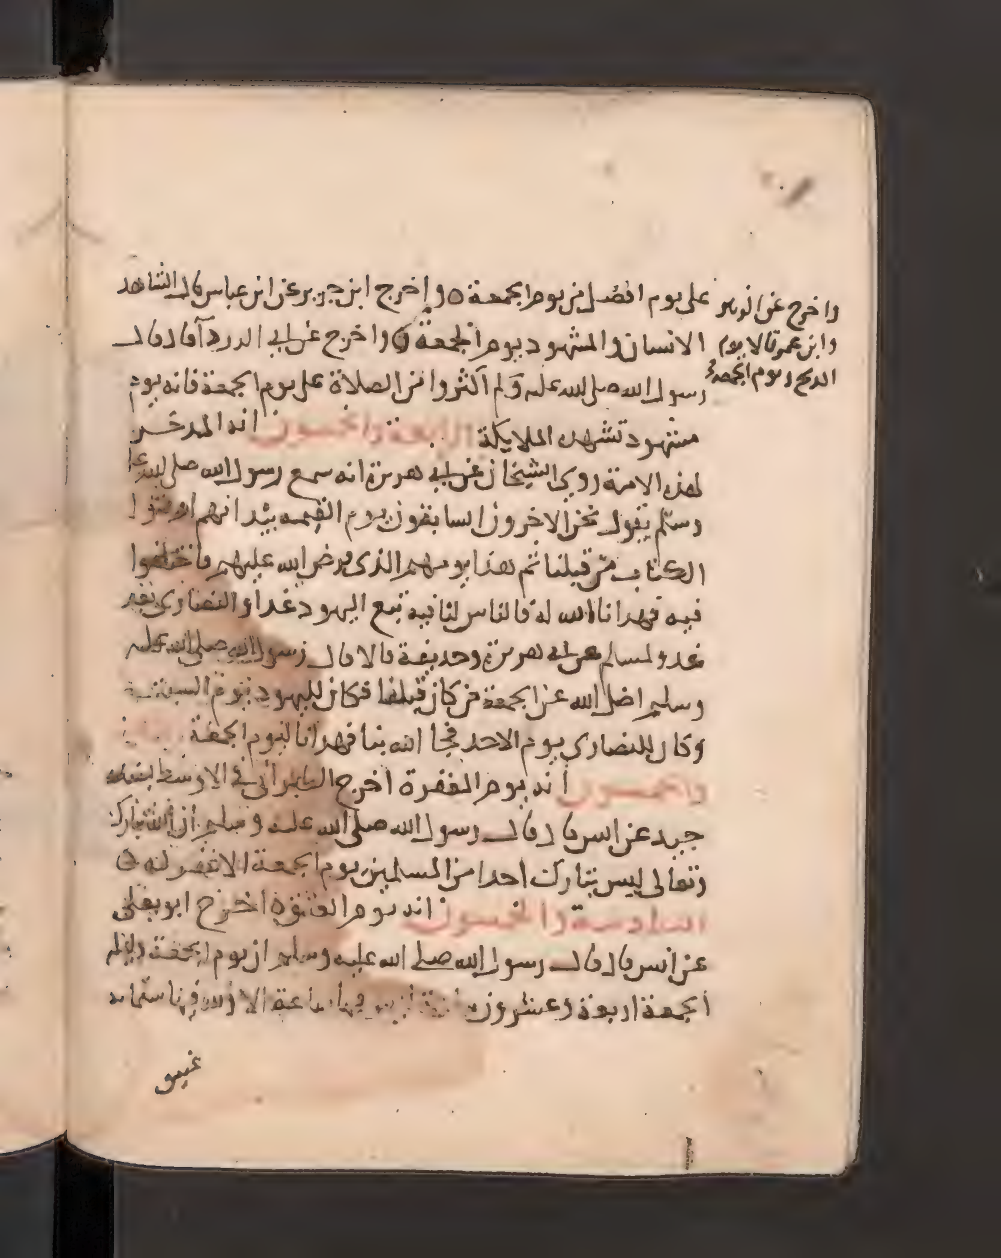 على يوم افضل من يوم الجمعة ه واخرج ابن جرير عن ابن عباس قال الشاهد
الانسان والمشهود يوم الجمعة ه واخرج عن ابي الدرداء قال قال
رسول الله صلى الله عليه وسلم اكثروا من الصلاة على يوم الجمعة فانه يوم
مشهود تشهده الملايكة الرابعة والخمسون انه المدخر
لهذه الامة روى الشيخان عن ابي هريرة انه سمع رسول الله صلى الله عليه
وسلم يقول نحن الاخرون السابقون يوم القيمه بيد انهم اوتوا
الكتاب من قبلنا ثم هذا يومهم الذى فرض الله عليهم فاختلفوا
فيه فهدانا الله له فالناس لنا فيه تبع اليهود غدا والنصارى بعد
غد ولمسلم عن ابي هريرة وحذيفة قالا قال رسول الله صلى الله عليه
وسلم اضل الله عن الجمعة من كان قبلنا فكان لليهود يوم السبت
وكان للنصارى يوم الاحد فجا الله بنا فهدانا ليوم الجمعة
والخمسون انه يوم المغفرة اخرج الطبرانى فى الاوسط بسند
جيد عن انس قال قال رسول الله صلى الله عليه وسلم ان الله تبارك
وتعالى ليس بتارك احدا من المسلمين يوم الجمعة الا غفر له
السادسة والخمسون انه يوم العتق اخرج ابو يعلى
عن انس قال قال رسول الله صلى الله عليه وسلم ان يوم الجمعة وليلة
الجمعة اربعة وعشرون ساعة ليس فيها ساعة الا ولله فيها ستماية
عتيق
واخرج عن الزبير
وابن عمر قالا يوم
الذبح ويوم الجمعة